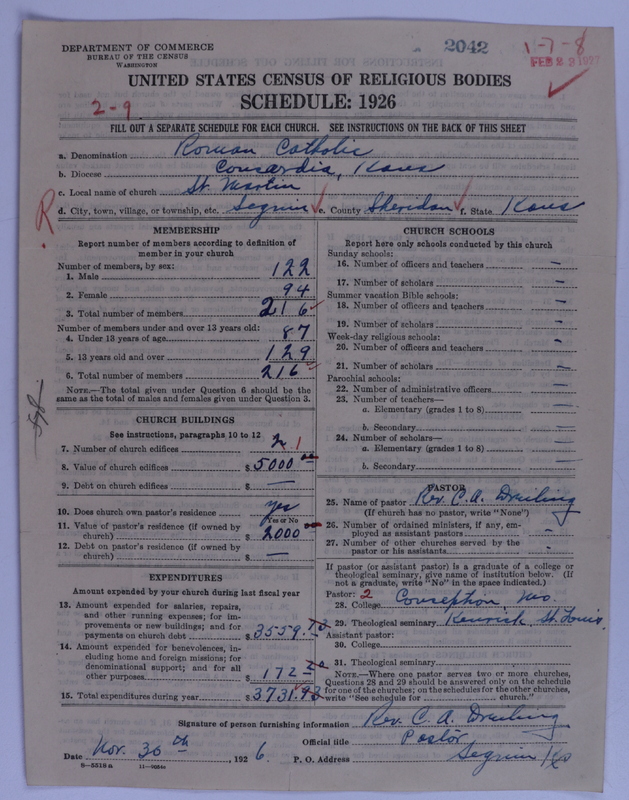 DEPARTMENT OF COMMERCE
BUREAU OF THE CENSUS
WASHINGTON
2042
1-7-8
FEB 23 1927
UNITED STATES CENSUS OF RELIGIOUS BODIES
SCHEDULE: 1926
2-9
FILL OUT A SEPARATE SCHEDULE FOR EACH CHURCH. SEE INSTRUCTIONS ON THE BACK OF THIS SHEET
a. Denomination Roman Catholic
b. Diocese Concordia, Kans
c. Local name of church St. Martin
d. City, town, village, or township, etc. Seguin e. County Sheridan f. State Kans
R
MEMBERSHIP
Report number of members according to definition of
member in your church
Number of members, by sex:
1. Male 122
2. Female 94
3. Total number of members 216
Number of members under and over 13 years old:
4. Under 13 years of age 87
5. 13 years old and over 129
6. Total number of members 216
NOTE.—The total given under Question 6 should be the
same as the total of males and females given under Question 3.
CHURCH BUILDINGS
See instructions, paragraphs 10 to 12
7. Number of church edifices 2 1
8. Value of church edifices $ 5000 00
9. Debt on church edifices $ —
10. Does church own pastor's residence yes
Yes or No
11. Value of pastor's residence (if owned by
church) $ 2000
12. Debt on pastor's residence (if owned by
church) $ —
EXPENDITURES
Amount expended by your church during last fiscal year
13. Amount expended for salaries, repairs,
and other running expenses; for im-
provements or new buildings; and for
payments on church debt $ 3559.
14. Amount expended for benevolences, in-
cluding home and foreign missions; for
denominational support; and for all
other purposes $ 172
15. Total expenditures during year $ 3731.93
CHURCH SCHOOLS
Report here only schools conducted by this church
Sunday schools:
16. Number of officers and teachers —
17. Number of scholars —
Summer vacation Bible schools:
18. Number of officers and teachers —
19. Number of scholars —
Week-day religious schools:
20. Number of officers and teachers —
21. Number of scholars —
Parochial schools:
22. Number of administrative officers —
23. Number of teachers—
a. Elementary (grades 1 to 8) —
b. Secondary —
24. Number of scholars—
a. Elementary (grades 1 to 8) —
b. Secondary —
PASTOR
25. Name of pastor Rev. C. A. Dreiling
(If church has no pastor, write "None")
26. Number of ordained ministers, if any, em-
ployed as assistant pastors -
27. Number of other churches served by the
pastor or his assistants -
If pastor (or assistant pastor) is a graduate of a college or
theological seminary, give name of institution below. (If
not a graduate, write "No" in the space indicated.)
Pastor: 2
28. College Conception, Mo.
29. Theological seminary Kenrick St. Louis
Assistant pastor:
30. College
31. Theological seminary
NOTE.—Where one pastor serves two or more churches,
Questions 28 and 29 should be answered only on the schedule
for one of the churches; on the schedules for the other churches,
write "See schedule for church."
Signature of person furnishing information Rev. C. A. Dreiling
Official title Pastor
Date Nov. 30th, 1926 P. O. Address Seguin
8—5518a 11—9054a